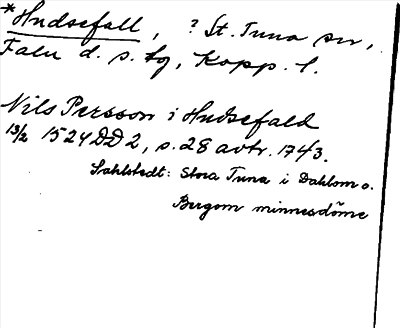 *Hudsefall, ? St. Tuna sn,
Falu d. s. fg, Kopp. l.
Nils Persson i Hudsefald
13/2 1524 DD 2, s. 28 avtr. 1743.
Sahlstedt: Stora Tuna i Dahlom o.
Bergom minnesdöme